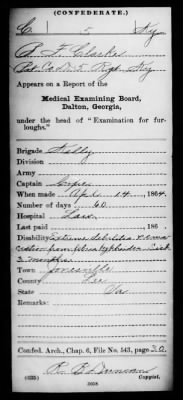 (CONFEDERATE.)
C 5 Ky
B. F. Clarke
Co. D. 5 Regt Ky
Appears on a Report of the
Medical Examining Board,
Dalton, Georgia,
under the head of "Examination for furloughs."
Brigade Kelly
Division
Army
Captain
When made Apl 14, 1864.
Number of days 60
Hospital Law
Last paid , 186 .
Disability Extreme debilitas &
from
3 months
Town Jonesville
County Lee
State Va
Remarks:
Confed. Arch., Chap. 6, File No. 543, page 30
R B
(635) Copyist.